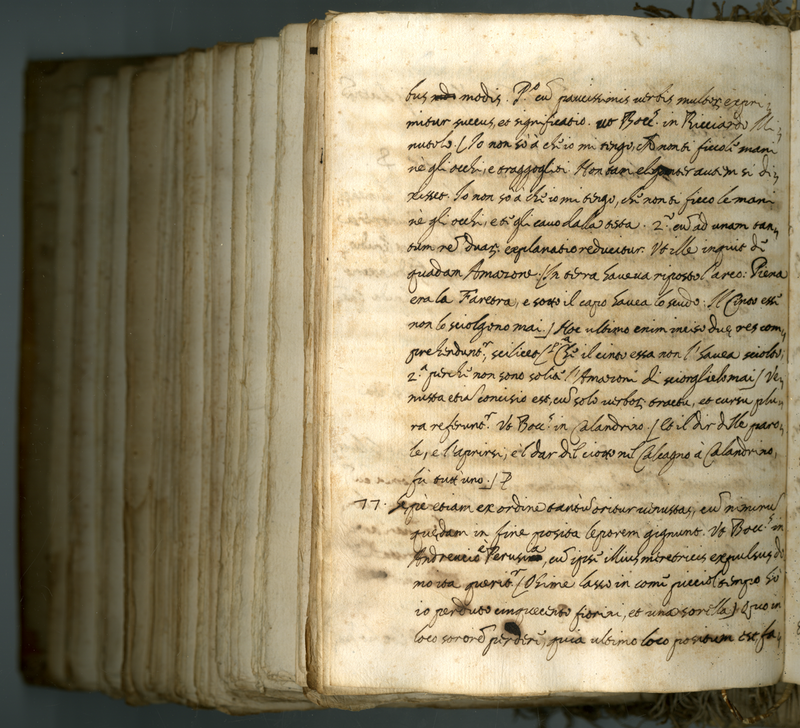 bus modis. P.º cũ paucissimis verbis multoꝝ expri-
mitur succus, et significatio. ut Bocc. in Ricciardo Mi-
nutolo (Io non sò à chi io mi tengo, che non ti ficco le mani
nè gli occhi, e traggogliti. Non tam eleganter autem si di-
xisset. Io non sò à chi io mi tengo, che non ti ficco le mani
nè gli occhi, e ti gli cavo dalla testa. 2.ª cũ ad unam tan-
tum rẽ duaꝝ explanatio reducitur. Ut ille inquit de
quadam Amazone. (In terra haveva riposto l'arco: Piena
era la Faretra, e sotto il capo havea lo scudo: Il Cinto esse
non lo sciolgono mai.) Hoc ultimo enim inciso duę res com-
prehendunt.r, scilicet (P.ª Che il cinto essa non l'havea sciolto;
2.ª perchè non sono solite l'Amazoni di sciorglielo mai) Ve-
nusta etiã concisio est, cũ solo verboꝝ tractu, et cursu plu-
ra referunt.r. Ut Bocc. in Calandrino. (Et il dir delle paro-
le, e l'aprirsi, e'l dar del ciotto nel Calcagno à Calandrino,
fù tutt'uno.)
77. Sæpè etiam ex ordine tantũ oritur venustas, cũ nimirũ
quędam in fine posita leporem gignunt. Ut Bocc. in
Andreuccio Perusino, cũ ipse illius meretricis expulsus do-
mo ita querit.r (Ohime lasso in come picciol tempo hò
io perduto cinquecento fiorini, et una sorella) Quo in
loco sororẽ perdere, quia ultimo loco positum est, fa-